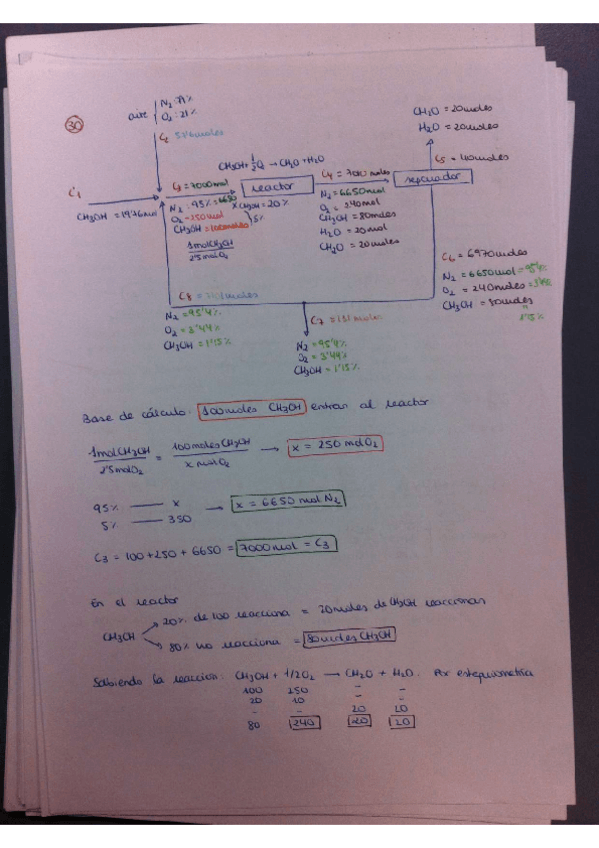 30
aire
N₂ 79%
O₂: 21%
C₂
C₁
CH₃OH = 19'76 mol
C₃ = 7000 mol
N₂: 95% = 6650
O₂ = 250 mol
CH₃OH = 100 moles
5%
1 mol CH₃OH
2'5 mol O₂
CH₃OH + 1/2 O₂ → CH₂O + H₂O
reactor
X CH₃OH = 20%
C₄ = 7010 moles
N₂ = 6650 mol
O₂ = 240 mol
CH₃OH = 80 moles
H₂O = 20 mol
CH₂O = 20 moles
separador
CH₂O = 20 moles
H₂O = 20 moles
C₅ = 40 moles
C₆ = 6970 moles
N₂ = 6650 mol = 95'4%
O₂ = 240 moles = 3'44%
CH₃OH = 80 moles
1'15%
C₈
N₂ = 95'4%
O₂ = 3'44%
CH₃OH = 1'15%
C₇ = 131 moles
N₂ = 95'4%
O₂ = 3'44%
CH₃OH = 1'15%
Base de cálculo: 100 moles CH₃OH entran al reactor
1 mol CH₃OH / 2'5 mol O₂ = 100 moles CH₃OH / x mol O₂ → x = 250 mol O₂
95% — x
5% — 350
→ x = 6650 mol N₂
C₃ = 100 + 250 + 6650 = 7000 mol = C₃
En el reactor
CH₃OH
20% de 100 reacciona = 20 moles de CH₃OH reaccionan
80% no reacciona = 80 moles CH₃OH
Sabiendo la reacción: CH₃OH + 1/2 O₂ → CH₂O + H₂O. Por estequiometría
100 250 - -
20 10 - -
- - 20 20
80 240 20 20